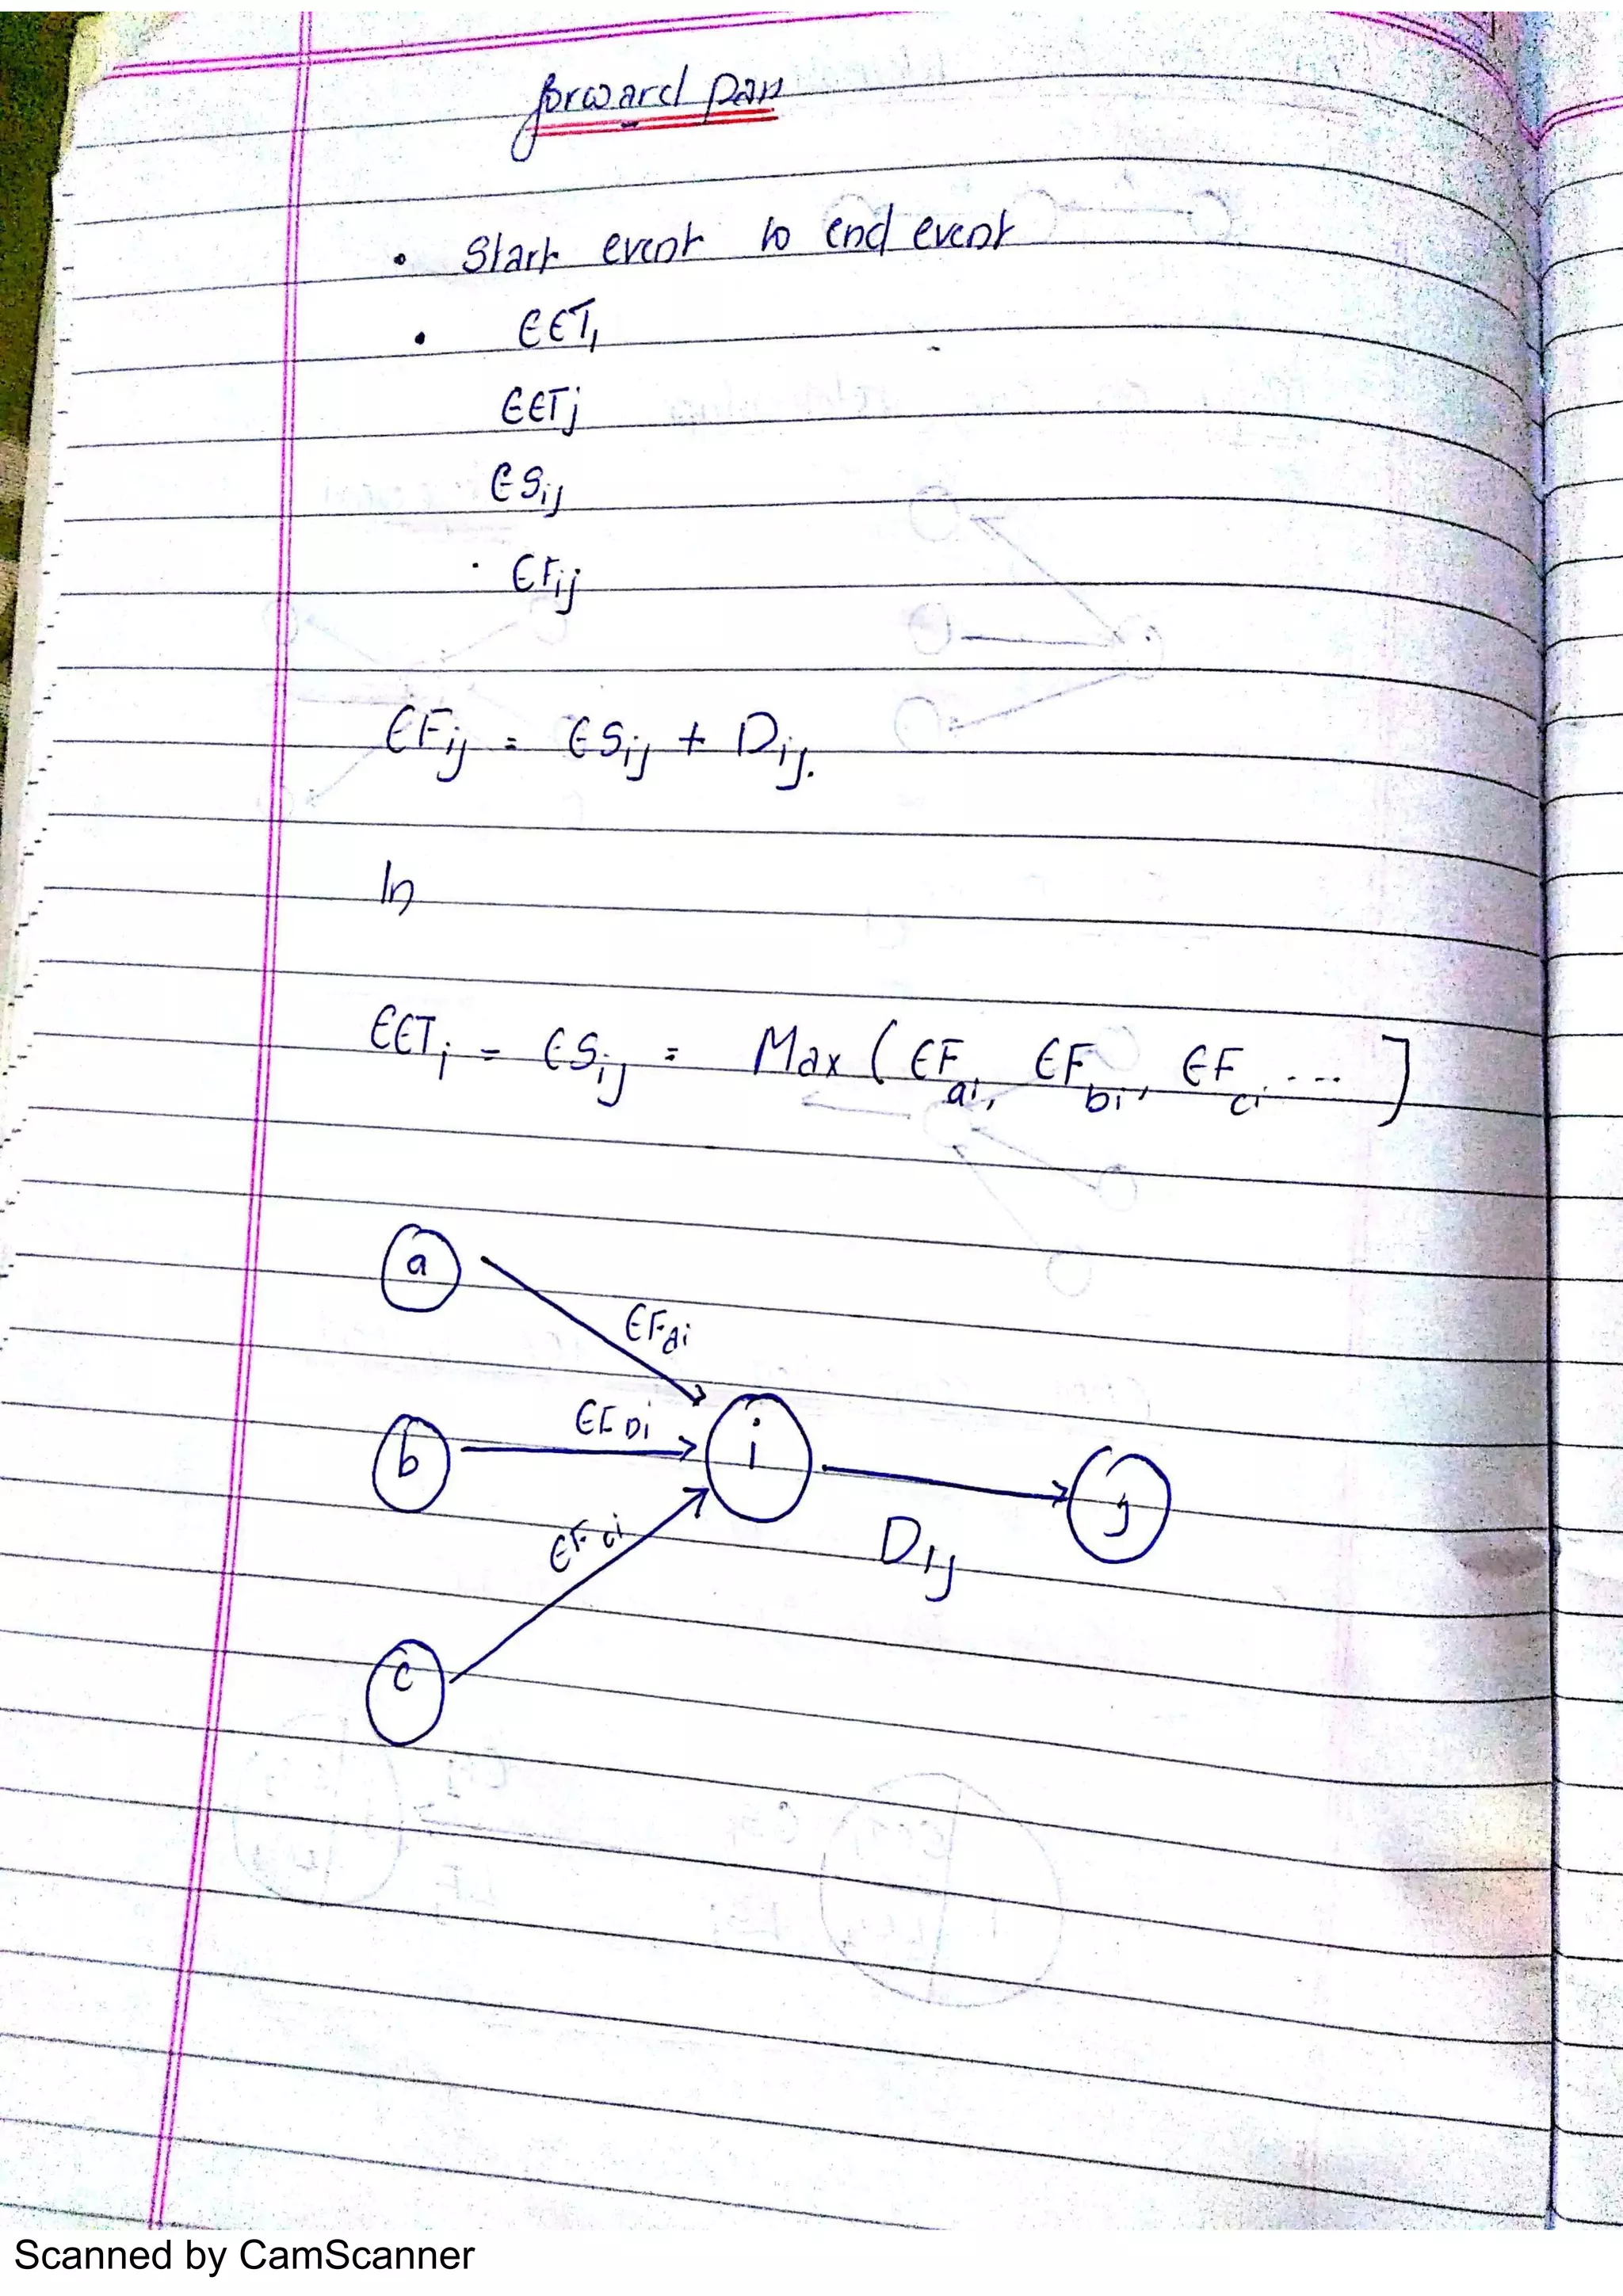 forward pass
• Start event to end event
• EETi
EETj
ESij
· EFij
EFij = ESij + Dij.
In
EETi = ESij = Max ( EFai, EFbi, EFci .... ]
a
EFai
EFbi
b
i
j
EFci
Dij
c
Scanned by CamScanner